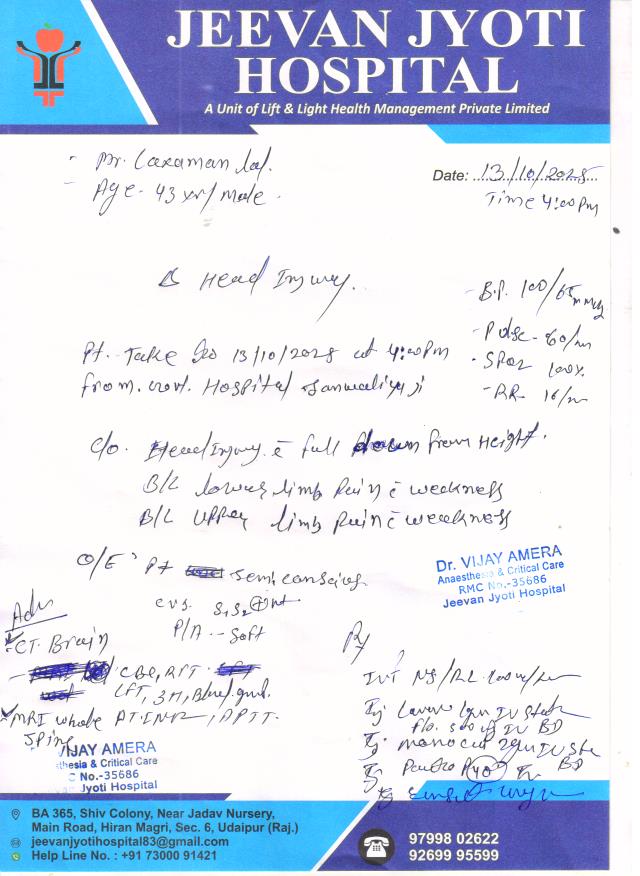 JEEVAN JYOTI
HOSPITAL
A Unit of Lift & Light Health Management Private Limited
- Mr. Laxaman lal.
- Age - 43 yr/male.
Date: 13/10/2025
Time 4:00pm
Δ Head Injury.
- B.P. 100/65 mmHg
- Pulse - 60/m
- SPO2 100%
- RR 16/m
Pt. Take 13/10/2025 at 4:00pm
from. Govt. Hospital Sanwaliya ji
c/o. Head Injury c̄ full down from Height.
B/L lower limb Pain c̄ weakness
B/L Upper limb Pain c̄ weakness
O/E Pt semi conscious
cvs S1S2 ⊕nt
P/A - Soft
Dr. VIJAY AMERA
Anaesthesia & Critical Care
RMC No.-35686
Jeevan Jyoti Hospital
Adv
CT. Brain
CBC, RFT
LFT, 3H,
MRI whole PT.INR, APTT.
Spine
VIJAY AMERA
thesia & Critical Care
C No.-35686
Jyoti Hospital
Rx
IVF NS/RL 100
Inj
Inj monocef 2gm IV
Inj Panto 40 BD
Inj
BA 365, Shiv Colony, Near Jadav Nursery,
Main Road, Hiran Magri, Sec. 6, Udaipur (Raj.)
jeevanjyotihospital83@gmail.com
Help Line No. : +91 73000 91421
97998 02622
92699 95599